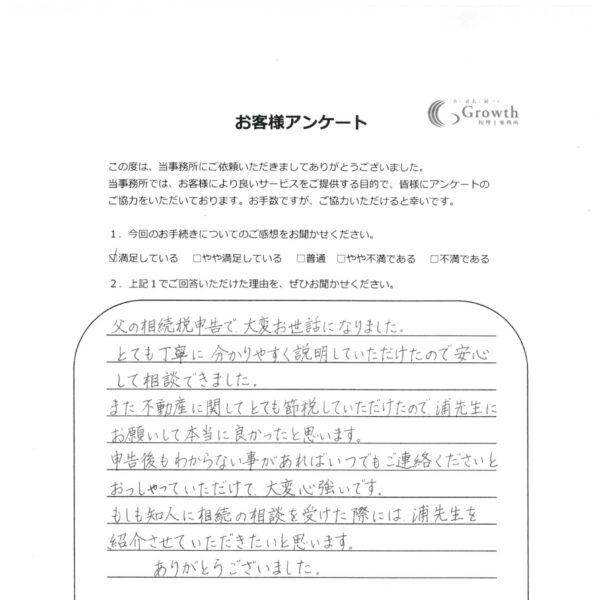 Growth
税理士事務所
お客様アンケート
この度は、当事務所にご依頼いただきましてありがとうございました。
当事務所では、お客様により良いサービスをご提供する目的で、皆様にアンケートの
ご協力をいただいております。お手数ですが、ご協力いただけると幸いです。
1．今回のお手続きについてのご感想をお聞かせください。
☑満足している　□やや満足している　□普通　□やや不満である　□不満である
2．上記1でご回答いただけた理由を、ぜひお聞かせください。
父の相続税申告で大変お世話になりました。
とても丁寧に分かりやすく説明していただけたので安心
して相談できました。
また不動産に関してとても節税していただけたので、浦先生に
お願いして本当に良かったと思います。
申告後もわからない事があればいつでもご連絡くださいと
おっしゃっていただけて、大変心強いです。
もしも知人に相続の相談を受けた際には浦先生を
紹介させていただきたいと思います。
ありがとうございました。